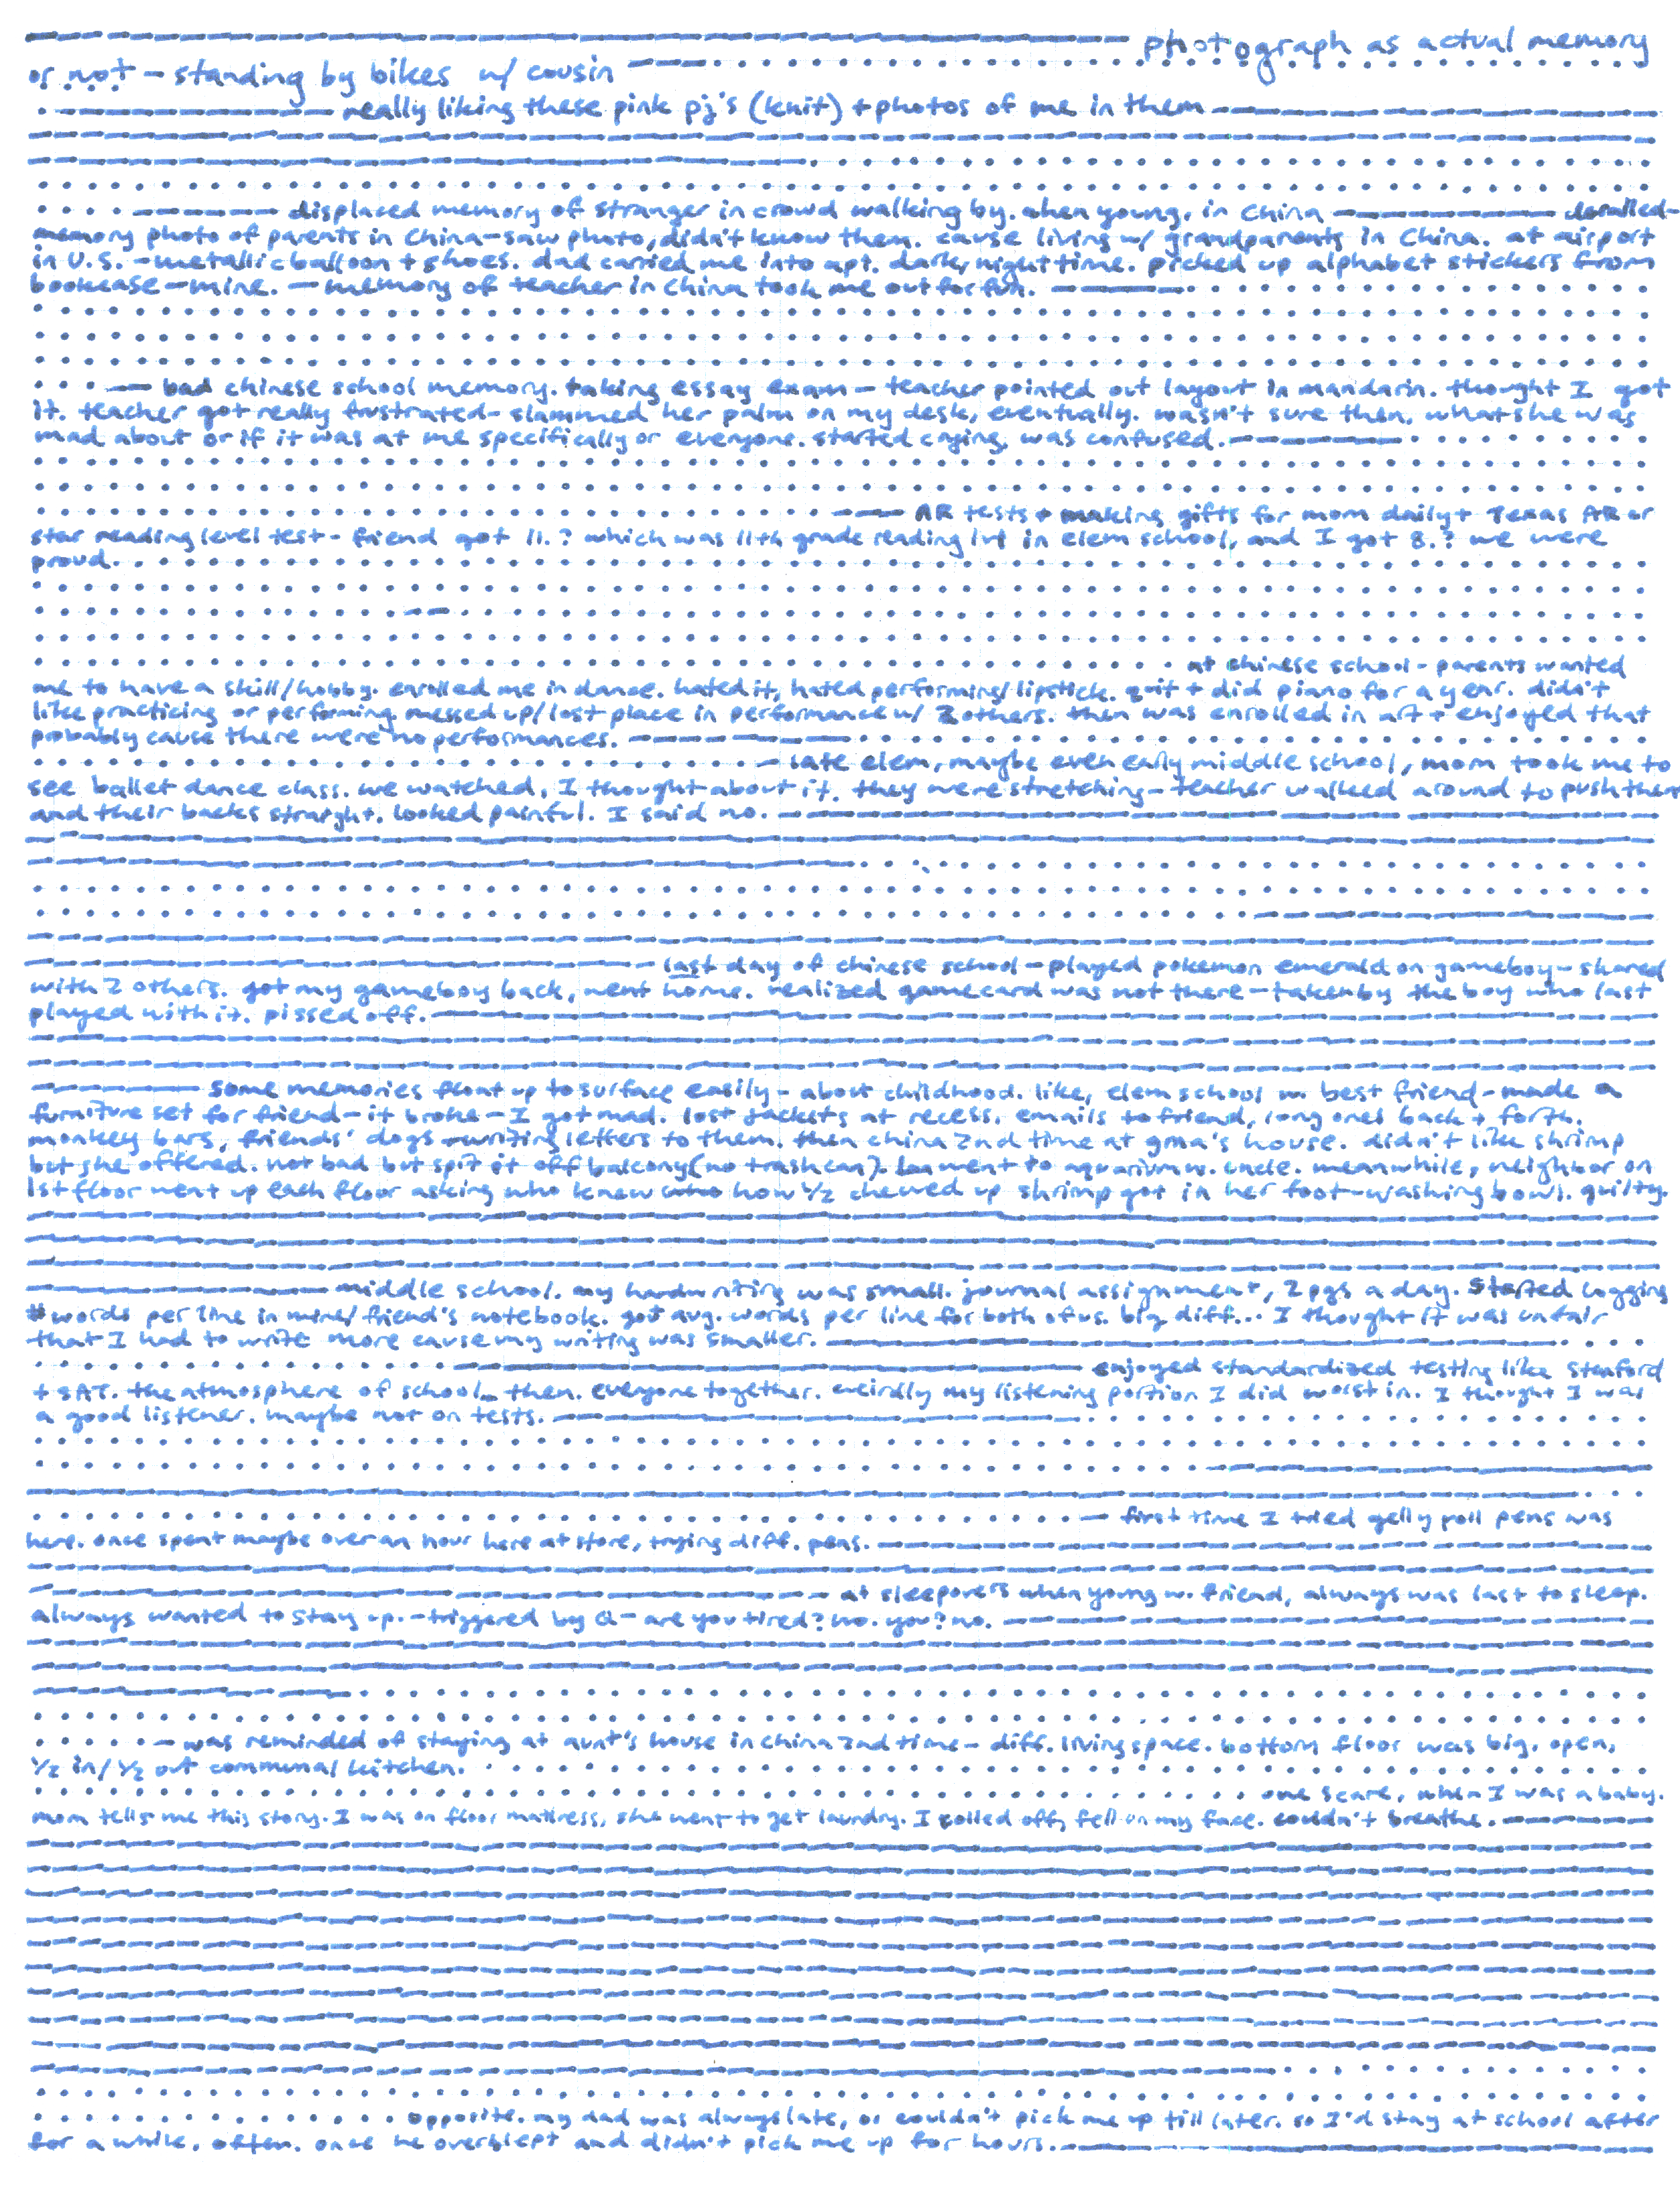 photograph as actual memory
or not - standing by bikes w/ cousin
really liking these pink pj's (knit) + photos of me in them
displaced memory of stranger in crowd walking by. when young. in China
memory photo of parents in China - saw photo, didn't know them. cause living w/ grandparents in China. at airport
in U.S. - metallic balloon + shoes. dad carried me into apt. dark, nighttime. picked up alphabet stickers from
bookcase - mine. - memory of teacher in China took me out for fun.
bad chinese school memory. taking essay exam - teacher pointed out layout in mandarin. thought I got
it. teacher got really frustrated - slammed her palm on my desk, eventually. wasn't sure then, what she was
mad about or if it was at me specifically or everyone. started crying, was confused.
AR tests + making gifts for mom daily + Texas AR or
star reading level test - friend got 11.? which was 11th grade reading lvl in elem school, and I got 8.? we were
proud.
at chinese school - parents wanted
me to have a skill/hobby. enrolled me in dance. hated it, hated performing/lipstick. quit + did piano for a year. didn't
like practicing or performing messed up/lost place in performance w/ 2 others. then was enrolled in art + enjoyed that
probably cause there were no performances.
late elem, maybe even early middle school, mom took me to
see ballet dance class. we watched, I thought about it. they were stretching - teacher walked around to push them
and their backs straight. looked painful. I said no.
last day of chinese school - played pokemon emerald on gameboy - shared
with 2 others. got my gameboy back, went home. realized gamecard was not there - taken by the boy who last
played with it. pissed off.
some memories float up to surface easily - about childhood. like, elem school w. best friend - made a
furniture set for friend - it broke - I got mad. lost jackets at recess. emails to friend, long ones back + forth.
monkey bars, friends' dogs - writing letters to them. then china 2nd time at gma's house. didn't like shrimp
but she offered. not bad but spit it off balcony (no trash can). went to aquarium w. uncle. meanwhile, neighbor on
1st floor went up each floor asking who knew who how 1/2 chewed up shrimp got in her foot-washing bowl. guilty.
middle school. my handwriting was small. journal assignment, 2 pgs a day. started logging
# words per line in mine/friend's notebook. got avg. words per line for both of us. big diff... I thought it was unfair
that I had to write more cause my writing was smaller.
enjoyed standardized testing like Stanford
+ SAT. the atmosphere of school then. everyone together. weirdly my listening portion I did worst in. I thought I was
a good listener. maybe not on tests.
first time I tried gelly roll pens was
here. once spent maybe over an hour here at store, trying diff. pens.
at sleepovers when young w. friend, always was last to sleep.
always wanted to stay up. - triggered by Q - are you tired? no. you? no.
was reminded of staying at aunt's house in china 2nd time - diff. living space. bottom floor was big. open,
1/2 in/1/2 out communal kitchen.
one scare, when I was a baby.
mom tells me this story. I was on floor mattress, she went to get laundry. I rolled off, fell on my face. couldn't breathe.
opposite. my dad was always late, or couldn't pick me up till later. so I'd stay at school after
for a while. often. once he overslept and didn't pick me up for hours.